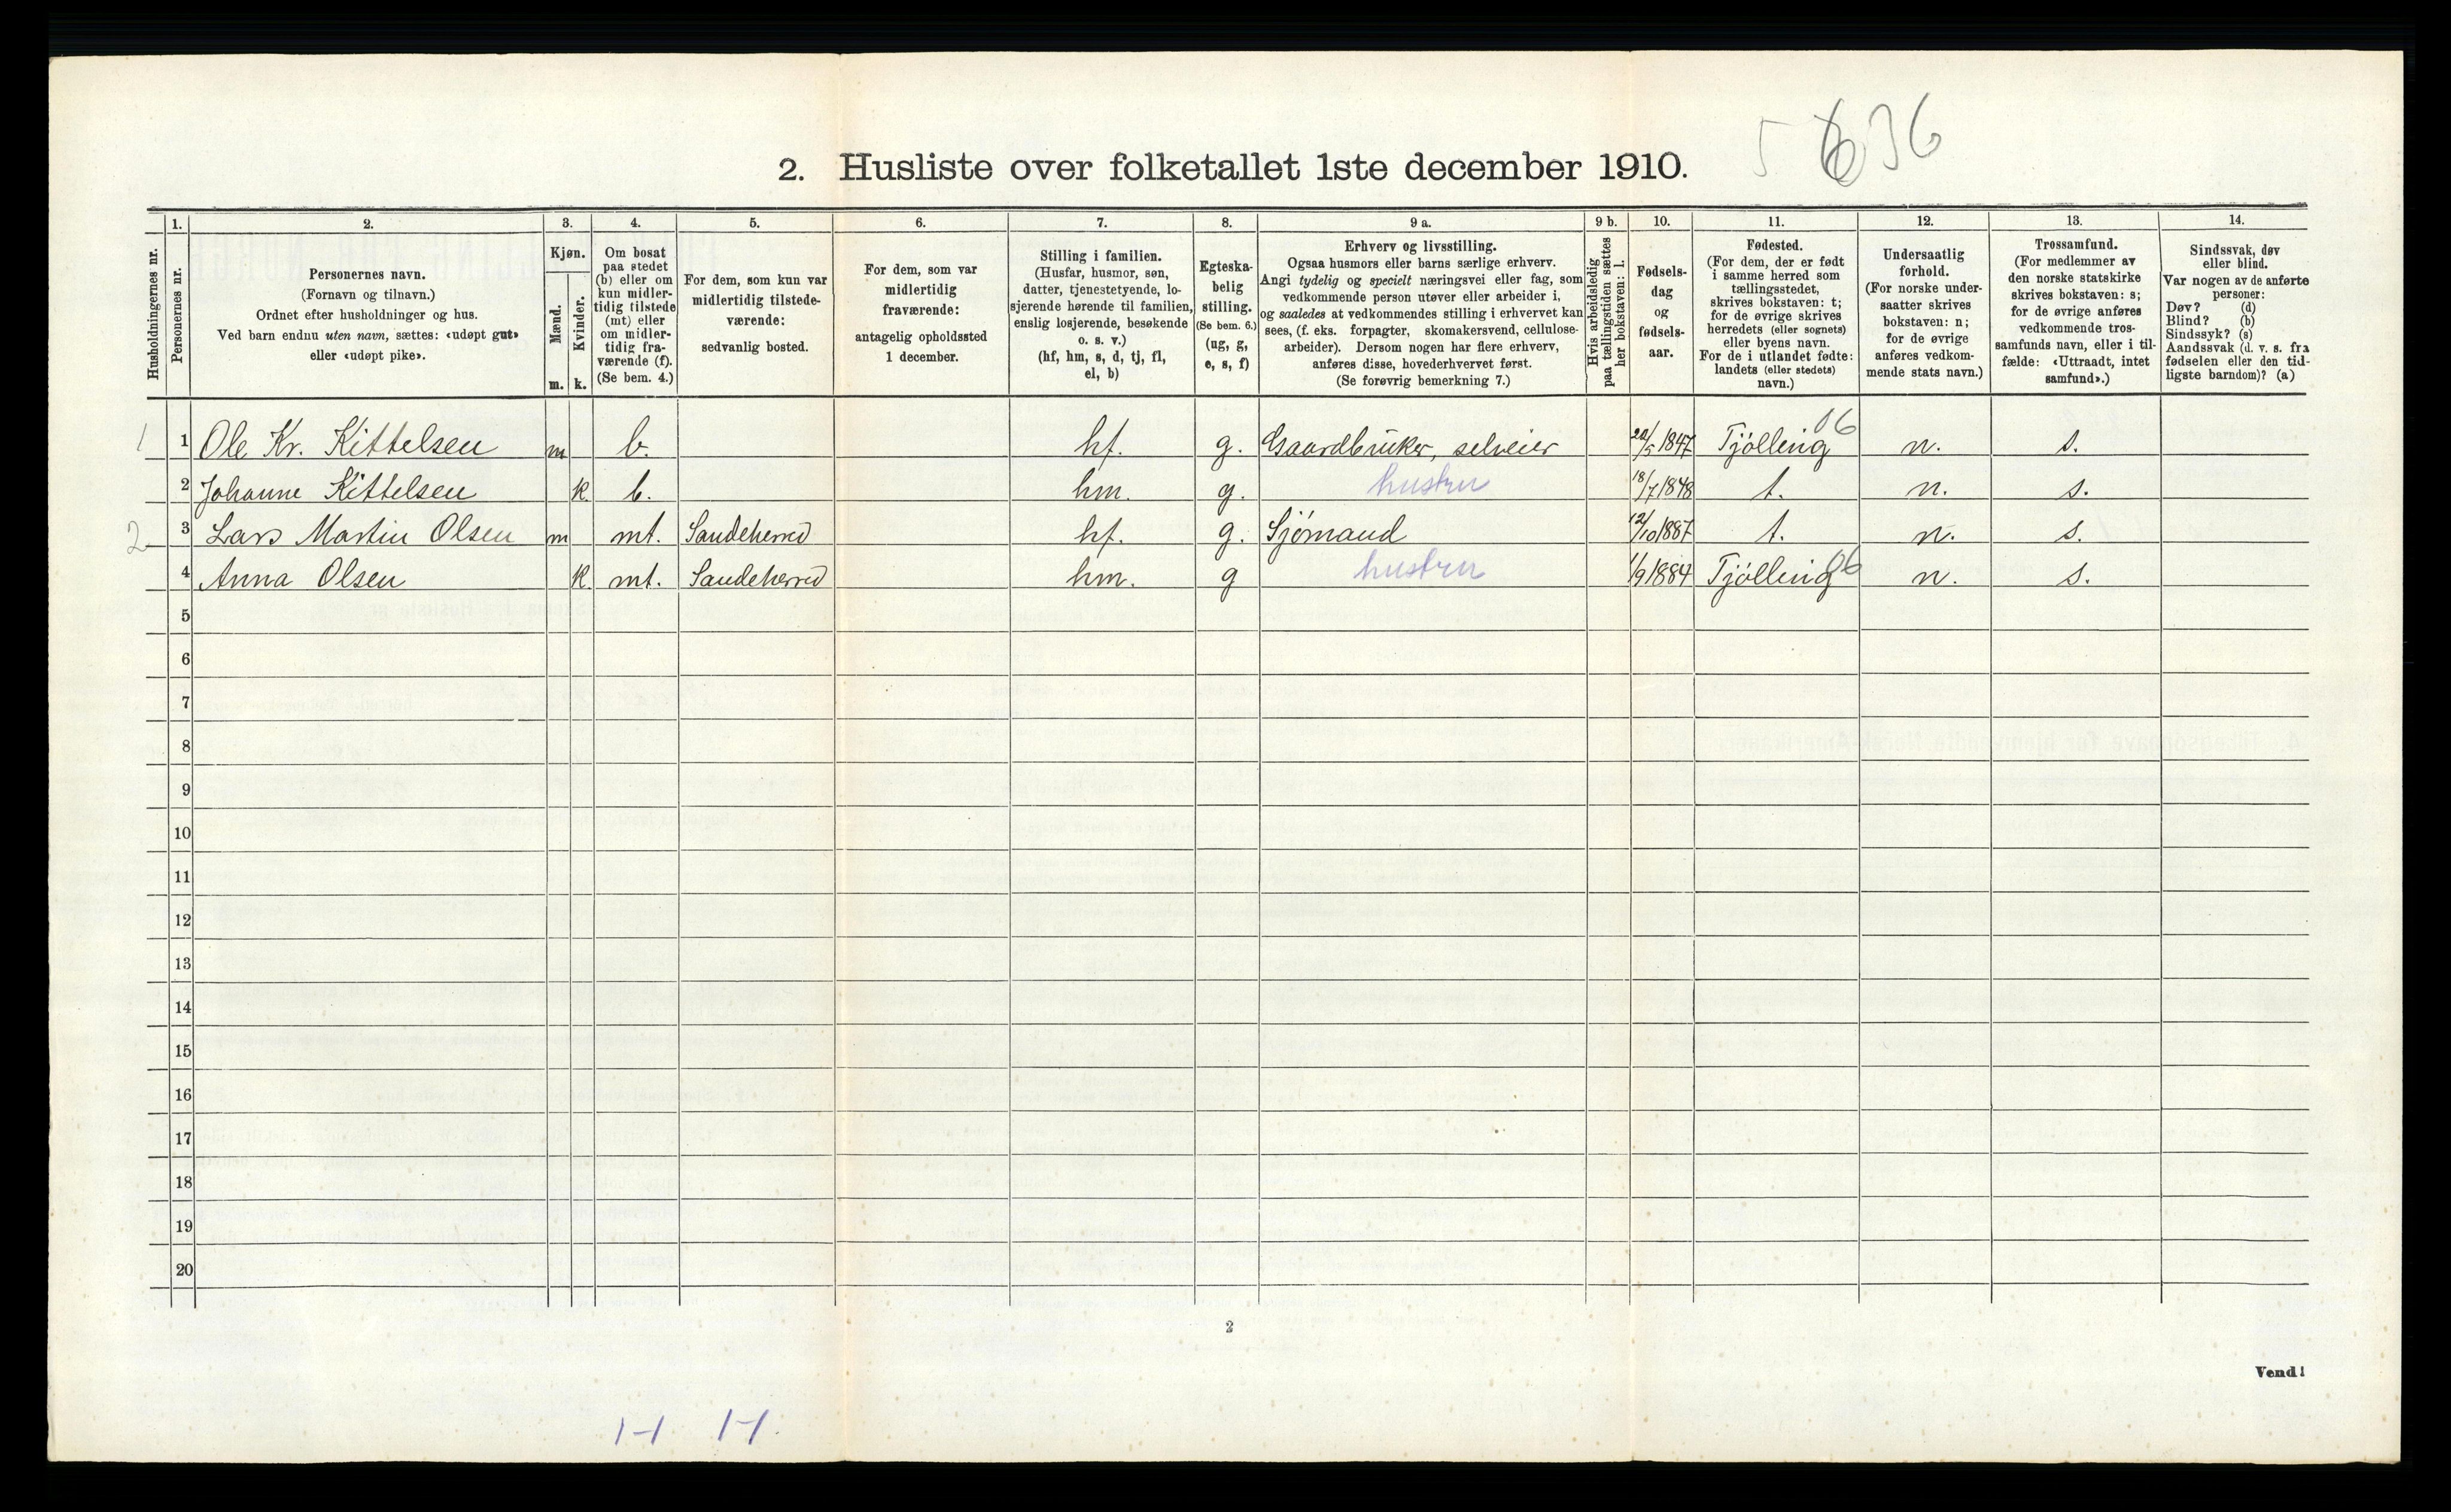 5 6 36
2. Husliste over folketallet 1ste december 1910.
Husholdningernes nr.
1.
Personernes nr.
2.
Personernes navn.
(Fornavn og tilnavn.)
Ordnet efter husholdninger og hus.
Ved barn endnu uten navn, sættes: «udøpt gut»
eller «udøpt pike».
3.
Kjøn.
Mænd.
m.
Kvinder.
k.
4.
Om bosat
paa stedet
(b) eller om
kun midler-
tidig tilstede
(mt) eller
om midler-
tidig fra-
værende (f).
(Se bem. 4.)
5.
For dem, som kun var
midlertidig tilstede-
værende:
sedvanlig bosted.
6.
For dem, som var
midlertidig
fraværende:
antagelig opholdssted
1 december.
7.
Stilling i familien.
(Husfar, husmor, søn,
datter, tjenestetyende, lo-
sjerende hørende til familien,
enslig losjerende, besøkende
o. s. v.)
(hf, hm, s, d, tj, fl,
el, b)
8.
Egteska-
belig
stilling.
(Se bem. 6.)
(ug, g,
e, s, f)
9 a.
Erhverv og livsstilling.
Ogsaa husmors eller barns særlige erhverv.
Angi tydelig og specielt næringsvei eller fag, som
vedkommende person utøver eller arbeider i,
og saaledes at vedkommendes stilling i erhvervet kan
sees, (f. eks. forpagter, skomakersvend, cellulose-
arbeider). Dersom nogen har flere erhverv,
anføres disse, hovederhvervet først.
(Se forøvrig bemerkning 7.)
9 b.
Hvis arbeidsledig
paa tællingstiden sættes
her bokstaven: l.
10.
Fødsels-
dag
og
fødsels-
aar.
11.
Fødested.
(For dem, der er født
i samme herred som
tællingsstedet,
skrives bokstaven: t;
for de øvrige skrives
herredets (eller sognets)
eller byens navn.
For de i utlandet fødte:
landets (eller stedets)
navn.)
12.
Undersaatlig
forhold.
(For norske under-
saatter skrives
bokstaven: n;
for de øvrige
anføres vedkom-
mende stats navn.)
13.
Trossamfund.
(For medlemmer av
den norske statskirke
skrives bokstaven: s;
for de øvrige anføres
vedkommende tros-
samfunds navn, eller i til-
fælde: «Uttraadt, intet
samfund».)
14.
Sindssvak, døv
eller blind.
Var nogen av de anførte
personer:
Døv? (d)
Blind? (b)
Sindssyk? (s)
Aandssvak (d. v. s. fra
fødselen eller den tid-
ligste barndom)? (a)
1 1 Ole Kr. Kittelsen m b. hf. g. Gaardbruker, selveier 20/5 1847 Tjølling 06 n. s.
2 Johanne Kittelsen k. b. hm. g. hustru 18/7 1848 t. n. s.
2 3 Lars Martin Olsen m mt. Sandeherred hf. g. Sjømand 12/10 1887 t. n. s.
4 Anna Olsen k. mt. Sandeherred hm. g hustru 1/9 1884 Tjølling 06 n. s.
5
6
7
8
9
10
11
12
13
14
15
16
17
18
19
20
2
Vend!